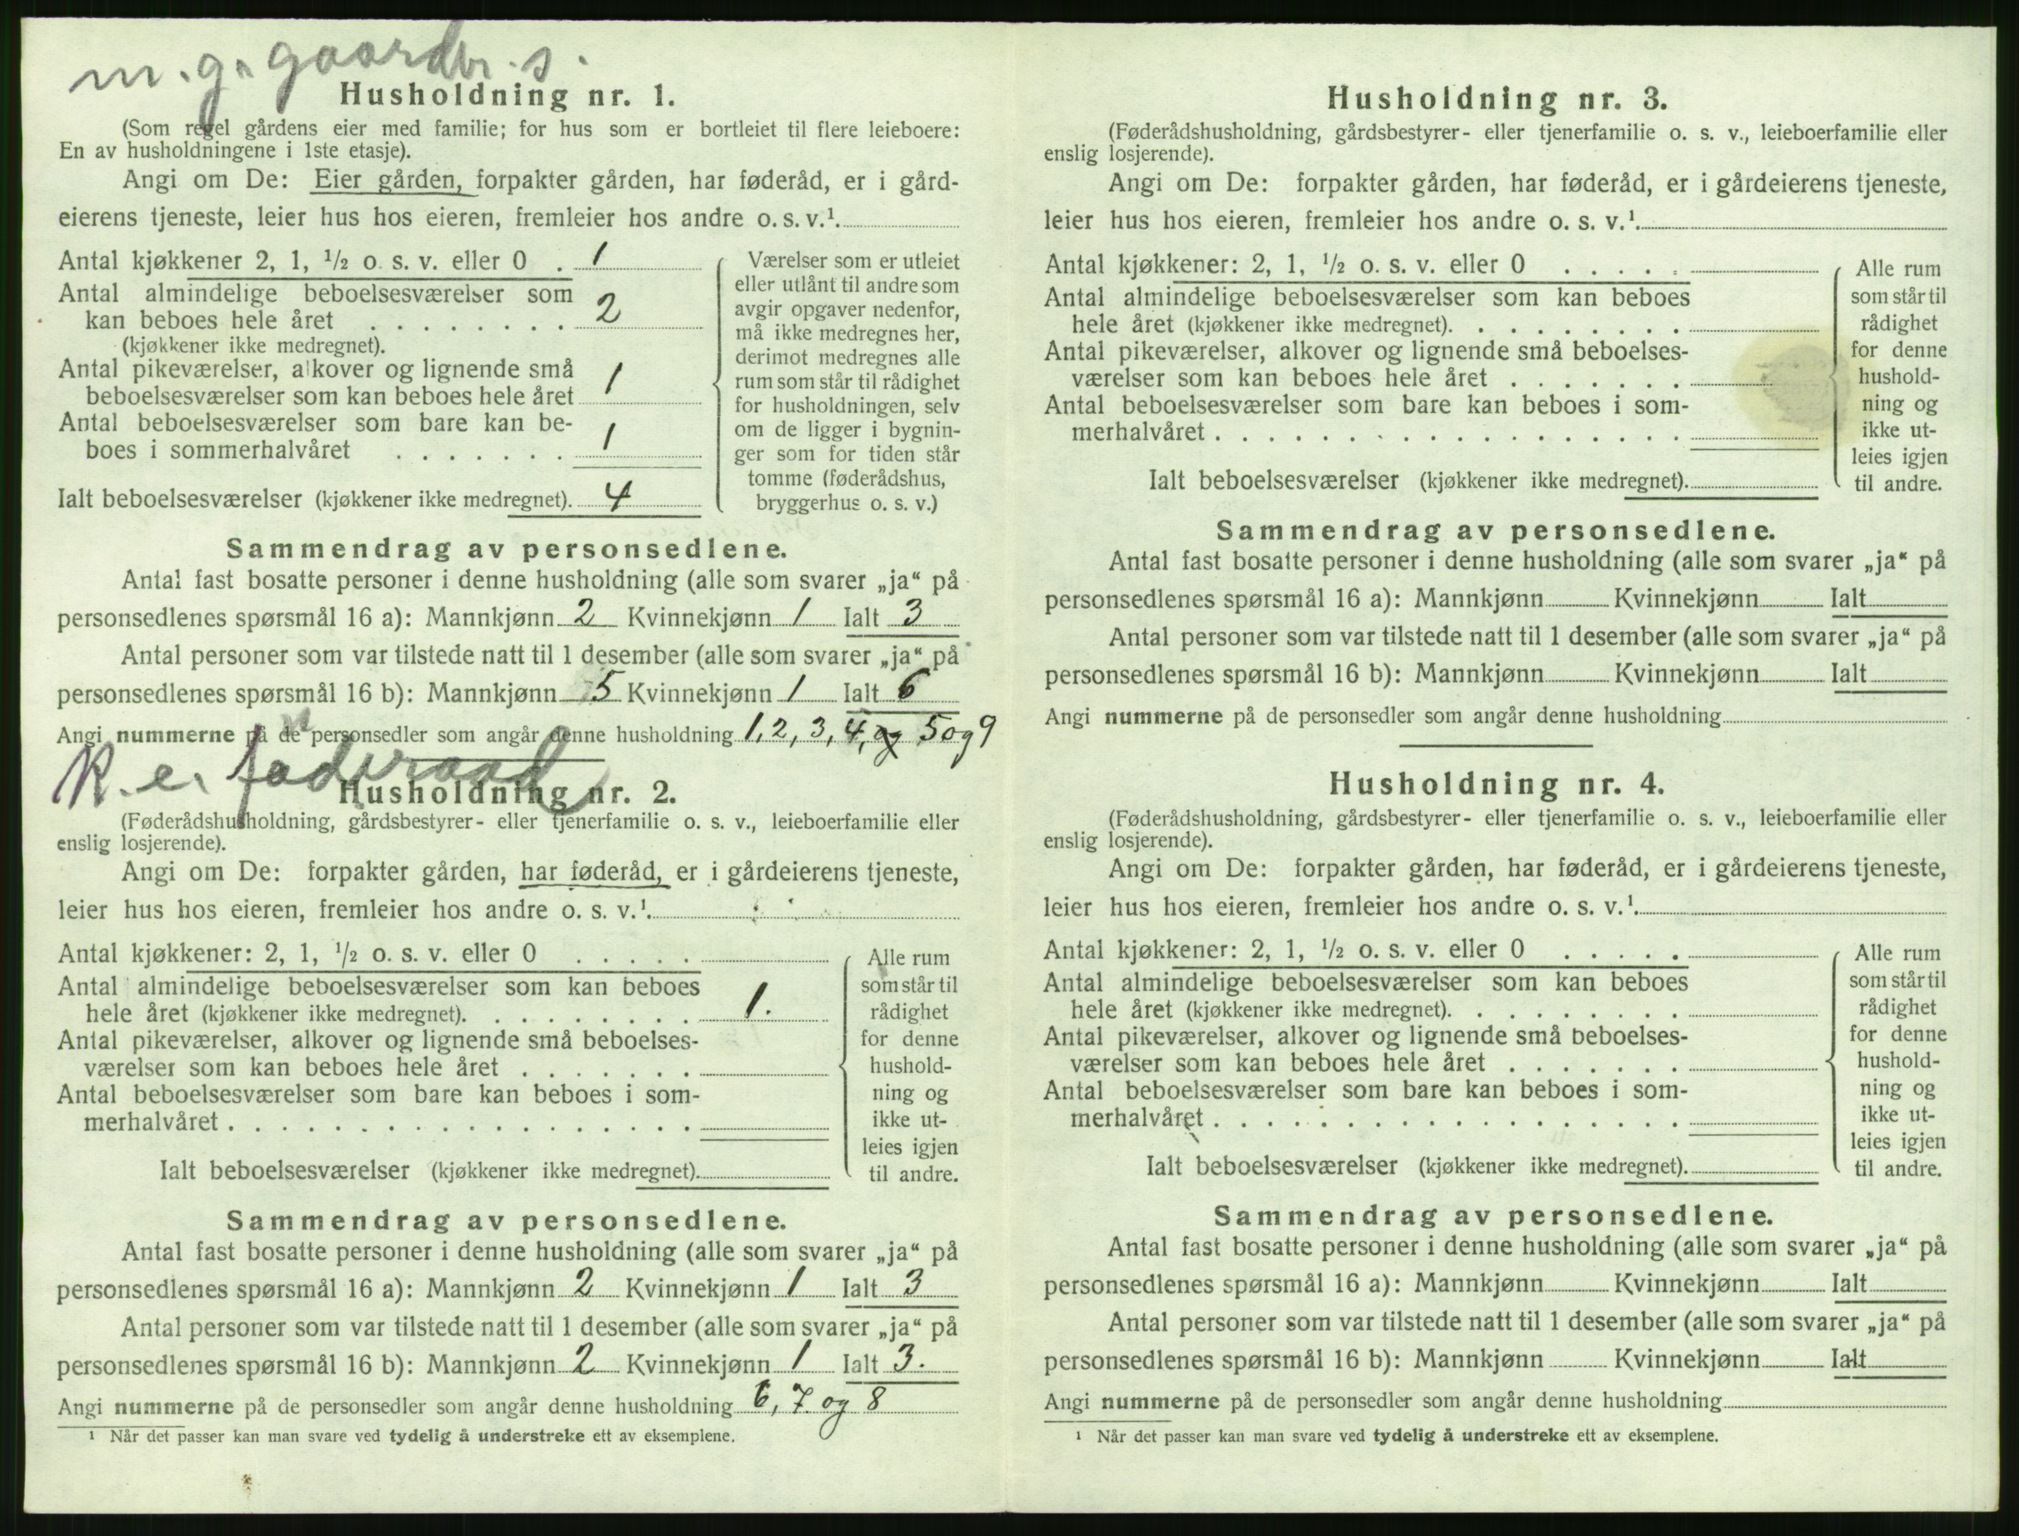 m. g. gaardbr. s.
Husholdning nr. 1.
(Som regel gårdens eier med familie; for hus som er bortleiet til flere leieboere:
En av husholdningene i 1ste etasje).
Angi om De: Eier gården, forpakter gården, har føderåd, er i gård-
eierens tjeneste, leier hus hos eieren, fremleier hos andre o. s. v.¹.
Antal kjøkkener 2, 1, ½ o. s. v. eller 0 . 1
Antal almindelige beboelsesværelser som
kan beboes hele året . . . . . . . . 2
(kjøkkener ikke medregnet).
Antal pikeværelser, alkover og lignende små
beboelsesværelser som kan beboes hele året 1
Antal beboelsesværelser som bare kan be-
boes i sommerhalvåret . . . . . . . 1
Ialt beboelsesværelser (kjøkkener ikke medregnet). 4
Værelser som er utleiet
eller utlånt til andre som
avgir opgaver nedenfor,
må ikke medregnes her,
derimot medregnes alle
rum som står til rådighet
for husholdningen, selv
om de ligger i bygnin-
ger som for tiden står
tomme (føderådshus,
bryggerhus o. s. v.)
Sammendrag av personsedlene.
Antal fast bosatte personer i denne husholdning (alle som svarer „ja“ på
personsedlenes spørsmål 16 a): Mannkjønn 2 Kvinnekjønn 1 Ialt 3
Antal personer som var tilstede natt til 1 desember (alle som svarer „ja“ på
personsedlenes spørsmål 16 b): Mannkjønn 5 Kvinnekjønn 1 Ialt 6
Angi nummerne på de personsedler som angår denne husholdning 1, 2, 3, 4, og 5 og 9
K. e. føderaad
Husholdning nr. 2.
(Føderådshusholdning, gårdsbestyrer- eller tjenerfamilie o. s. v., leieboerfamilie eller
enslig losjerende).
Angi om De: forpakter gården, har føderåd, er i gårdeierens tjeneste,
leier hus hos eieren, fremleier hos andre o. s. v.¹.
Antal kjøkkener: 2, 1, ½ o. s. v. eller 0 . . . . .
Antal almindelige beboelsesværelser som kan beboes
hele året (kjøkkener ikke medregnet). . . . . . . . . 1.
Antal pikeværelser, alkover og lignende små beboelses-
værelser som kan beboes hele året . . . . . . .
Antal beboelsesværelser som bare kan beboes i som-
merhalvåret . . . . . . . . . . . . . . . . . .
Ialt beboelsesværelser (kjøkkener ikke medregnet).
Alle rum
som står til
rådighet
for denne
hushold-
ning og
ikke ut-
leies igjen
til andre.
Sammendrag av personsedlene.
Antal fast bosatte personer i denne husholdning (alle som svarer „ja“ på
personsedlenes spørsmål 16 a): Mannkjønn 2 Kvinnekjønn 1 Ialt 3
Antal personer som var tilstede natt til 1 desember (alle som svarer „ja“ på
personsedlenes spørsmål 16 b): Mannkjønn 2 Kvinnekjønn 1 Ialt 3.
Angi nummerne på de personsedler som angår denne husholdning 6, 7. og 8
¹ Når det passer kan man svare ved tydelig å understreke ett av eksemplene.
Husholdning nr. 3.
(Føderådshusholdning, gårdsbestyrer- eller tjenerfamilie o. s. v., leieboerfamilie eller
enslig losjerende).
Angi om De: forpakter gården, har føderåd, er i gårdeierens tjeneste,
leier hus hos eieren, fremleier hos andre o. s. v.¹.
Antal kjøkkener: 2, 1, ½ o. s. v. eller 0 . . . . .
Antal almindelige beboelsesværelser som kan beboes
hele året (kjøkkener ikke medregnet). . . . . . . . .
Antal pikeværelser, alkover og lignende små beboelses-
værelser som kan beboes hele året . . . . . . .
Antal beboelsesværelser som bare kan beboes i som-
merhalvåret . . . . . . . . . . . . . . . . . .
Ialt beboelsesværelser (kjøkkener ikke medregnet).
Alle rum
som står til
rådighet
for denne
hushold-
ning og
ikke ut-
leies igjen
til andre.
Sammendrag av personsedlene.
Antal fast bosatte personer i denne husholdning (alle som svarer „ja“ på
personsedlenes spørsmål 16 a): Mannkjønn Kvinnekjønn Ialt
Antal personer som var tilstede natt til 1 desember (alle som svarer „ja“ på
personsedlenes spørsmål 16 b): Mannkjønn Kvinnekjønn Ialt
Angi nummerne på de personsedler som angår denne husholdning
Husholdning nr. 4.
(Føderådshusholdning, gårdsbestyrer- eller tjenerfamilie o. s. v., leieboerfamilie eller
enslig losjerende).
Angi om De: forpakter gården, har føderåd, er i gårdeierens tjeneste,
leier hus hos eieren, fremleier hos andre o. s. v.¹.
Antal kjøkkener: 2, 1, ½ o. s. v. eller 0 . . . . .
Antal almindelige beboelsesværelser som kan beboes
hele året (kjøkkener ikke medregnet). . . . . . . . .
Antal pikeværelser, alkover og lignende små beboelses-
værelser som kan beboes hele året . . . . . . .
Antal beboelsesværelser som bare kan beboes i som-
merhalvåret . . . . . . . . . . . . . . . . . .
Ialt beboelsesværelser (kjøkkener ikke medregnet).
Alle rum
som står til
rådighet
for denne
hushold-
ning og
ikke ut-
leies igjen
til andre.
Sammendrag av personsedlene.
Antal fast bosatte personer i denne husholdning (alle som svarer „ja“ på
personsedlenes spørsmål 16 a): Mannkjønn Kvinnekjønn Ialt
Antal personer som var tilstede natt til 1 desember (alle som svarer „ja“ på
personsedlenes spørsmål 16 b): Mannkjønn Kvinnekjønn Ialt
Angi nummerne på de personsedler som angår denne husholdning
¹ Når det passer kan man svare ved tydelig å understreke ett av eksemplene.